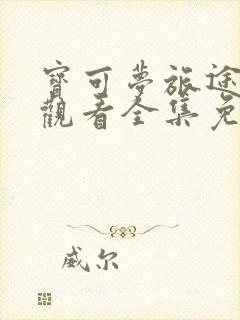 寶可夢旅途
觀看全集免
威尔